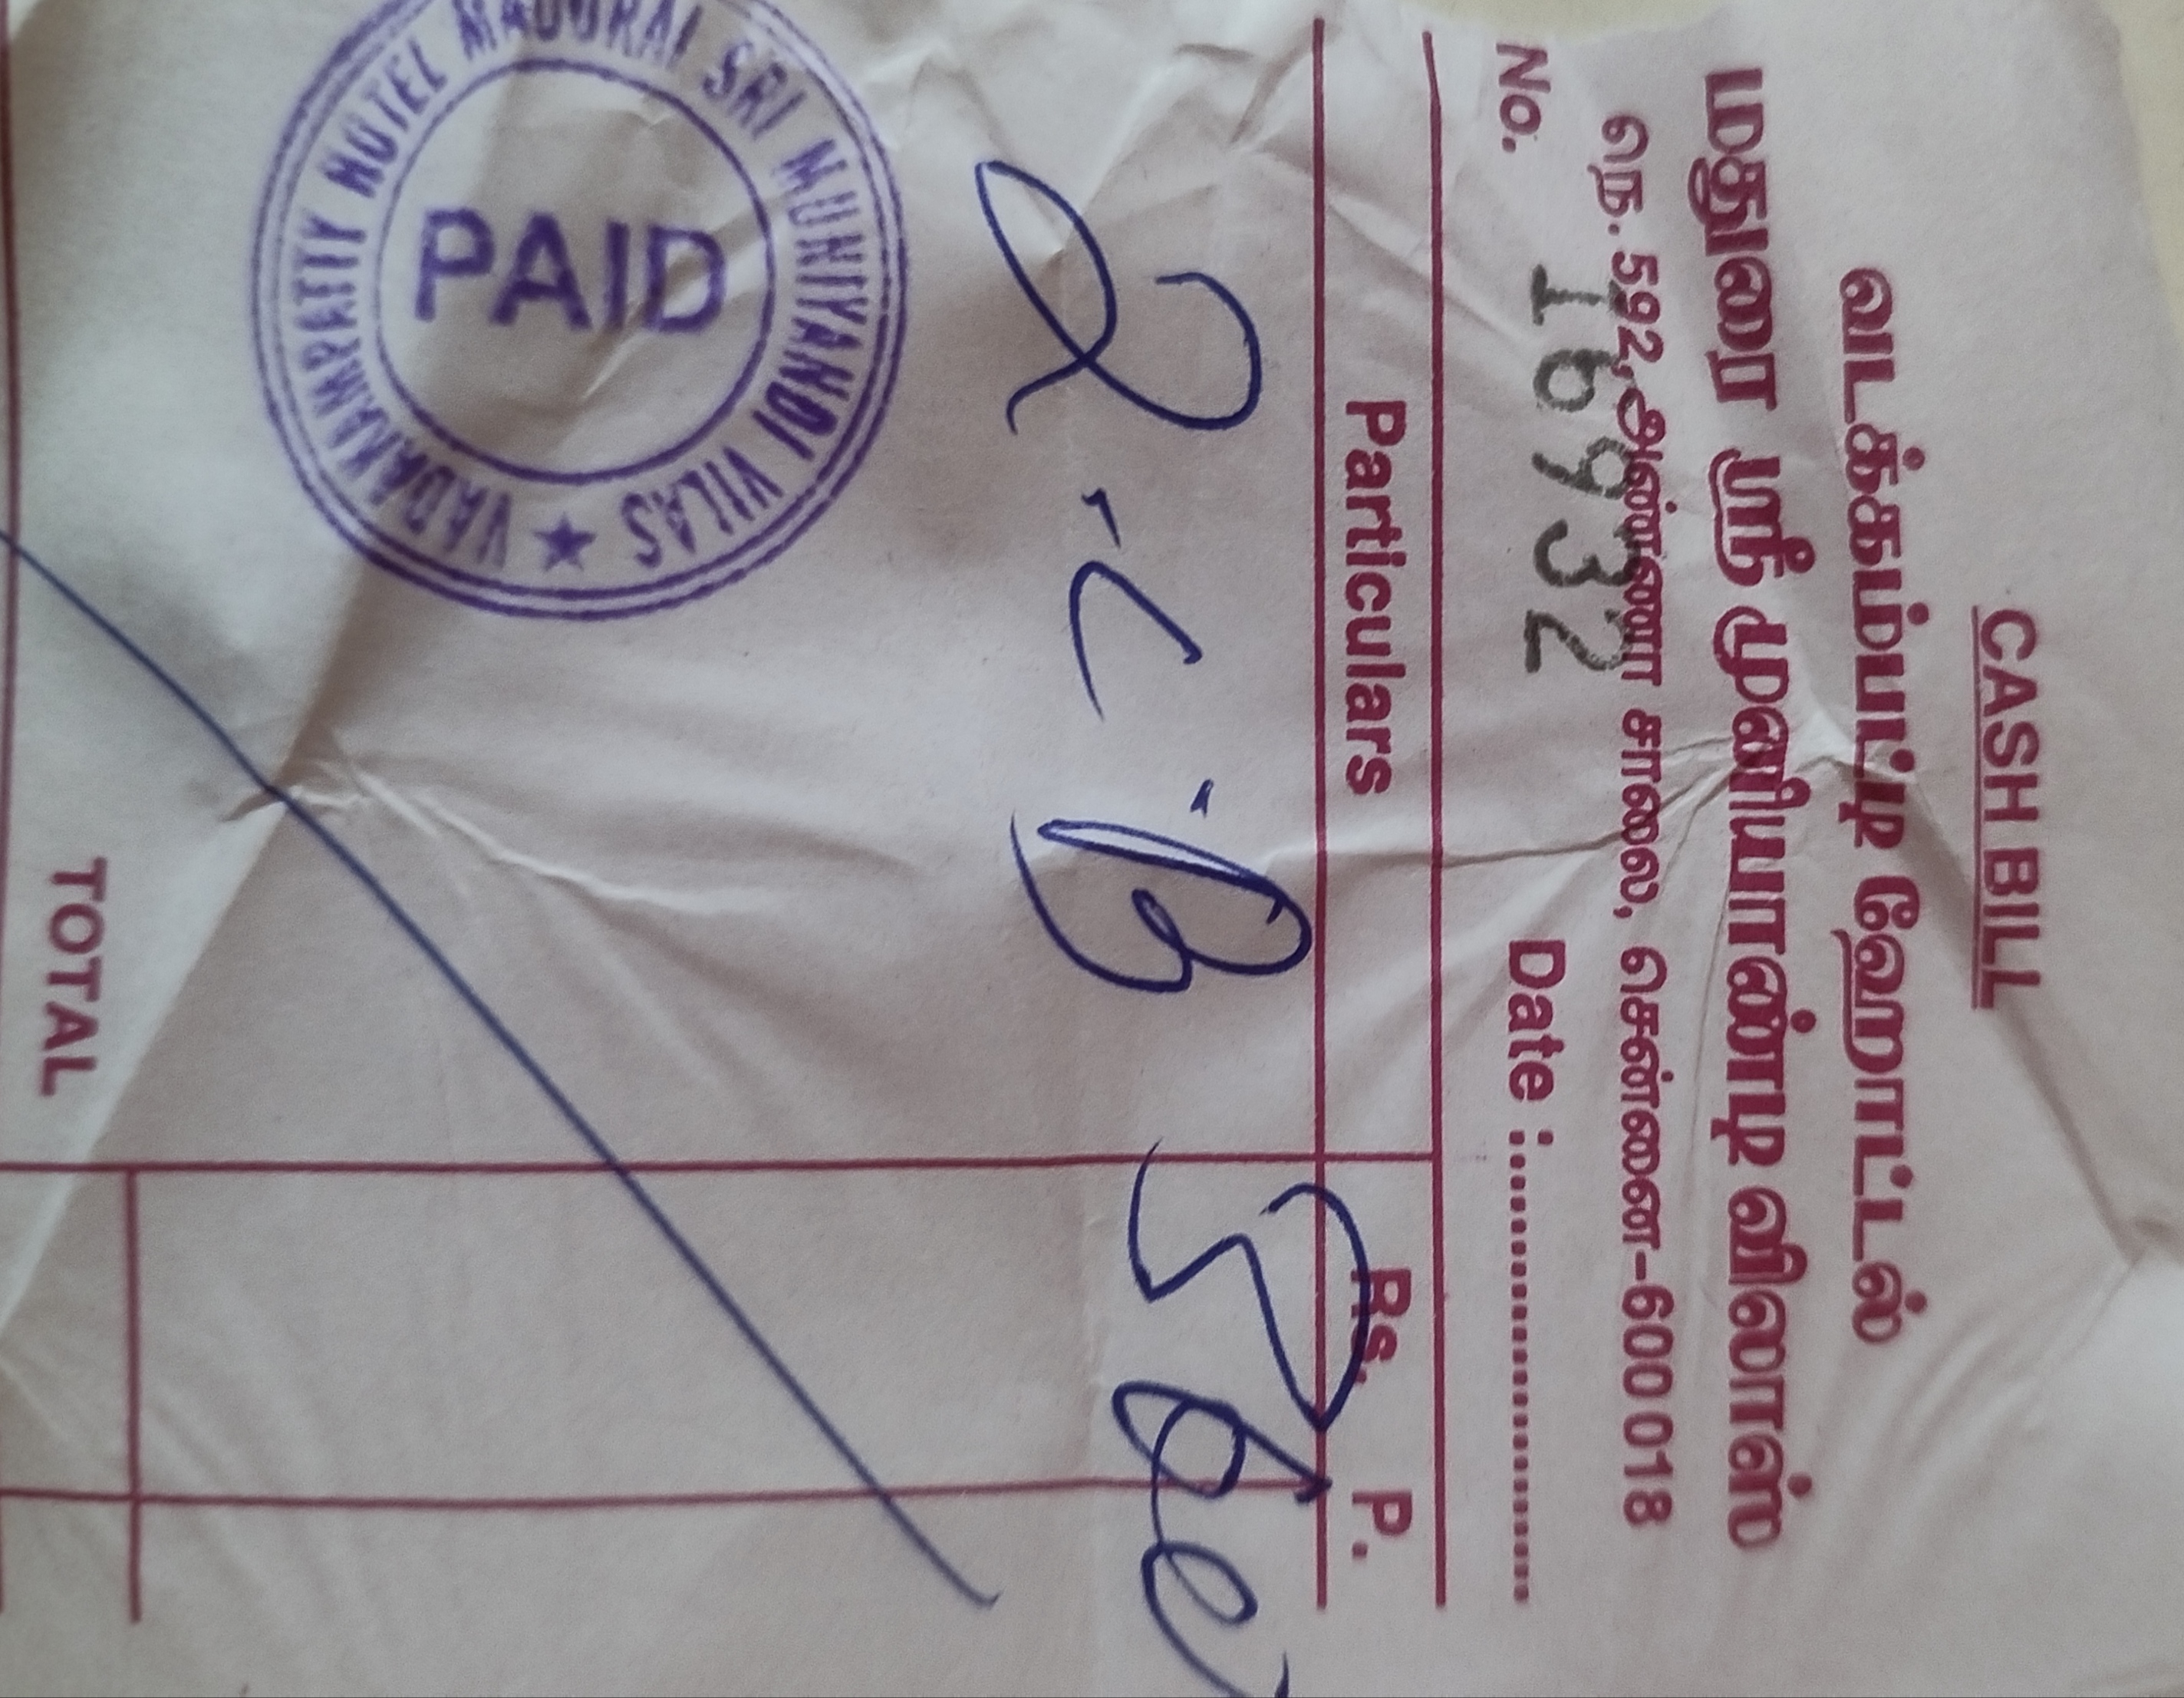 CASH BILL
வடக்கம்பட்டி ஹோட்டல்
மதுரை ஸ்ரீ முனியாண்டி விலாஸ்
நெ. 592, அண்ணா சாலை, சென்னை-600 018
No. 16932 Date :
Particulars Rs. P.
2-C-B
VADAKAMPATTY HOTEL MADURAI SRI MUNIYANDI VILAS ★
PAID
TOTAL